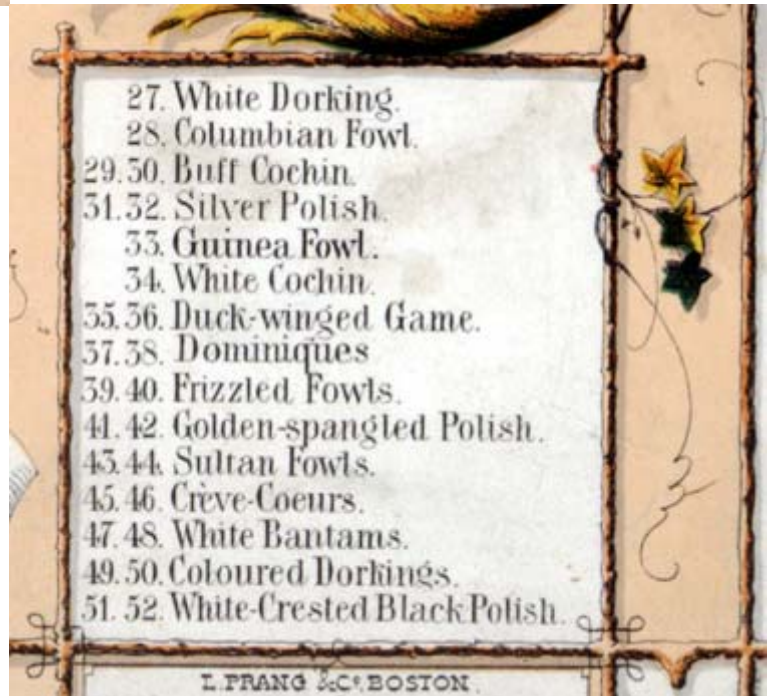 27. White Dorking.
28. Columbian Fowl.
29.30. Buff Cochin.
31.32. Silver Polish.
33. Guinea Fowl.
34. White Cochin.
35.36. Duck-winged Game.
37.38. Dominiques
39.40. Frizzled Fowls.
41.42. Golden-spangled Polish.
43.44. Sultan Fowls.
45.46. Crève-Coeurs.
47.48. White Bantams.
49.50. Coloured Dorkings.
51.52. White-Crested Black Polish.
L. PRANG & Co. BOSTON.